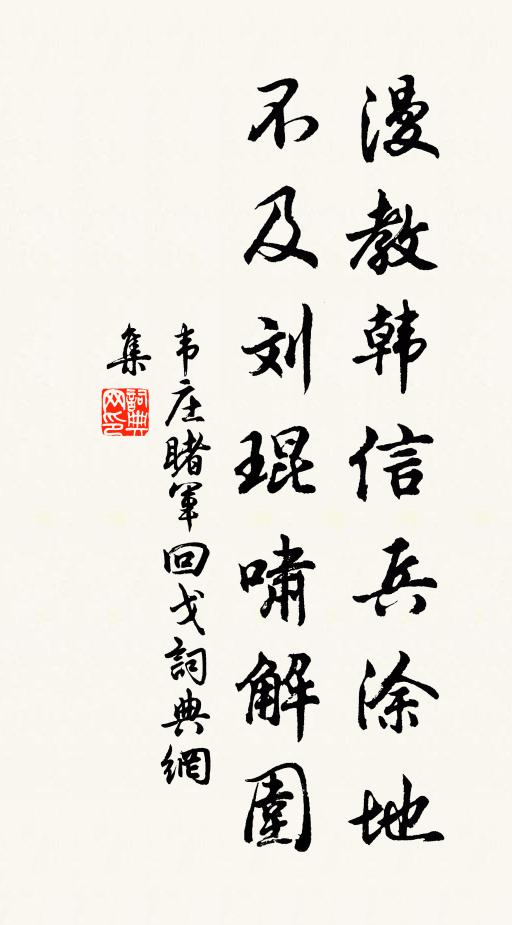 漫教韩信兵涂地
不及刘琨啸解圍
韦庄睹军回戈詞典網
集
詞典
网印